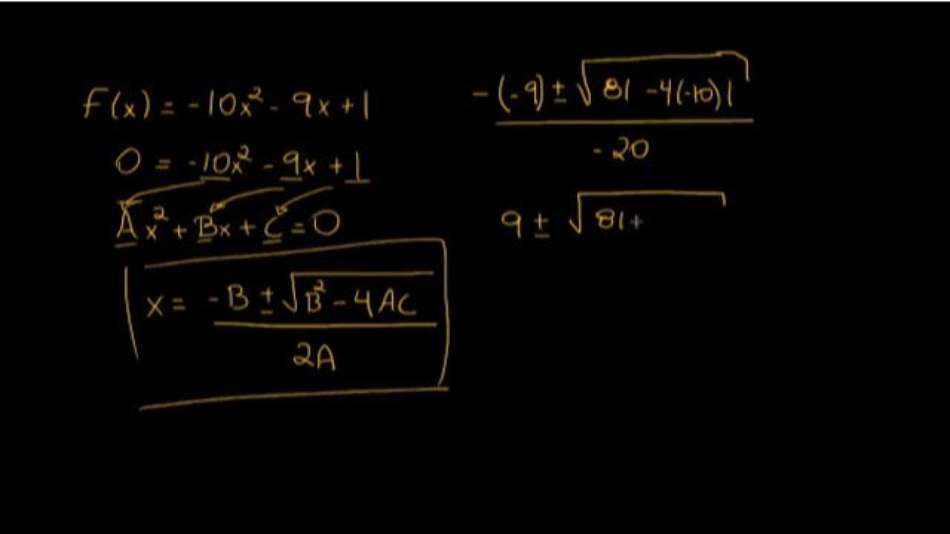 F(x) = -10x² - 9x + 1
0 = -10x² - 9x + 1
Ax² + Bx + C = 0
x = -B ± √B² - 4AC
2A
-(-9) ± √81 - 4(-10)1
-20
9 ± √81+